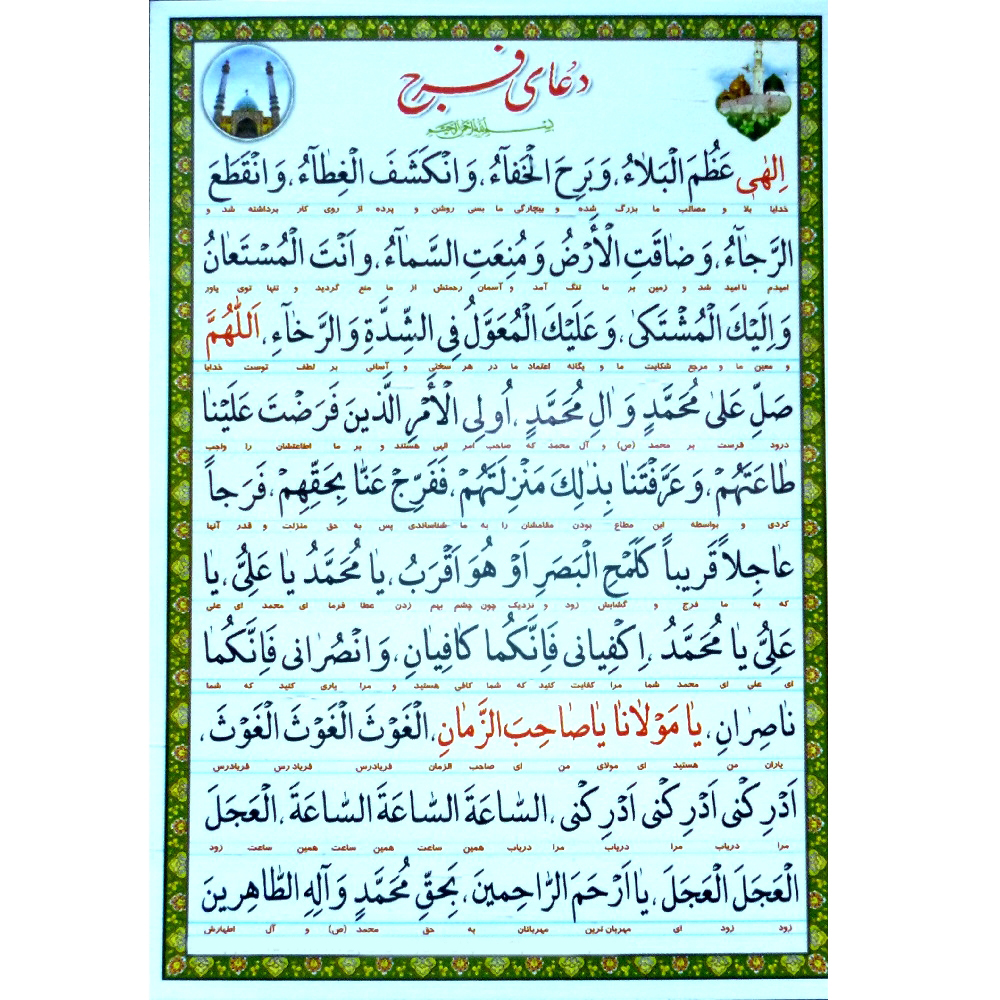 دعای فرج
بسم الله الرحمن الرحیم
اِلٰهی عَظُمَ الْبَلاٰءُ، وَبَرِحَ الْخَفآءُ، وَانْكَشَفَ الْغِطآءُ، وَانْقَطَعَ
خدایا بلا و مصائب ما بزرگ شده و بیچارگی ما بسی روشن و پرده از روی کار برداشته شد و
الرَّجآءُ، وَضاقَتِ الْأَرْضُ وَمُنِعَتِ السَّمآءُ، وَاَنْتَ الْمُسْتَعانُ
امیدم ناامید شد و زمین بر ما تنگ آمد و آسمان رحمتش از ما منع گردید و تنها توی یاور
وَاِلَیْكَ الْمُشْتَكیٰ، وَعَلَیْكَ الْمُعَوَّلُ فِی الشِّدَّةِ وَالرَّخآءِ، اَللّٰهُمَّ
و معین ما و مرجع شکایت ما و یگانه اعتماد ما در هر سختی و آسانی بر لطف توست خدایا
صَلِّ عَلیٰ مُحَمَّدٍ وَالِ مُحَمَّدٍ، اُولِی الْأَمْرِ الَّذینَ فَرَضْتَ عَلَیْنا
درود فرست بر محمد (ص) و آل محمد که صاحب امر الهی هستند و بر ما اطاعتشان را واجب
طاعَتَهُمْ، وَعَرَّفْتَنا بِذٰلِكَ مَنْزِلَتَهُمْ، فَفَرِّجْ عَنّا بِحَقِّهِمْ، فَرَجاً
کردی و بواسطه این مطاع بودن مقامشان را به ما شناساندی پس به حق منزلت و قدر آنها
عاجِلاً قَریباً كَلَمْحِ الْبَصَرِ اَوْ هُوَ اَقْرَبُ، یا مُحَمَّدُ یا عَلِیُّ، یا
که به ما فرج و گشایش زود و نزدیک چون چشم بهم زدن عطا فرما ای محمد ای علی
عَلِیُّ یا مُحَمَّدُ، اِكْفِیانی فَاِنَّكُما كافِیانِ، وَانْصُرانی فَاِنَّكُما
ای علی ای محمد شما مرا کفایت کنید که شما کافی هستید و مرا یاری کنید که شما
ناصِرانِ، یا مَوْلانا یاصاحِبَ الزَّمانِ، الْغَوْثَ الْغَوْثَ الْغَوْثَ،
یاران من هستید ای مولای من ای صاحب الزمان فریادرس فریاد رس فریادرس
اَدْرِكْنی اَدْرِكْنی اَدْرِكْنی، السّاعَةَ السّاعَةَ السّاعَةَ، الْعَجَلَ
مرا دریاب مرا دریاب مرا دریاب همین ساعت همین ساعت همین ساعت زود
الْعَجَلَ الْعَجَلَ، یا اَرْحَمَ الرّاحِمینَ، بِحَقِّ مُحَمَّدٍ وَآلِهِ الطّاهِرینَ
زود زود ای مهربان ترین مهربانان به حق محمد (ص) و آل اطهارش